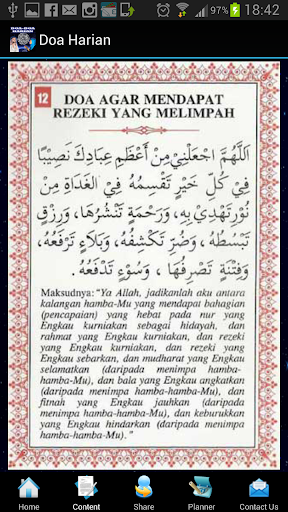 18:42
Doa Harian
12
DOA AGAR MENDAPAT
REZEKI YANG MELIMPAH
اَللَّهُمَّ اجْعَلْنِيْ مِنْ أَعْظَمِ عِبَادِكَ نَصِيْبًا
فِيْ كُلِّ خَيْرٍ تَقْسِمُهُ فِي الْغَدَاةِ مِنْ
نُوْرٍ تَهْدِيْ بِهِ، وَرَحْمَةٍ تَنْشُرُهَا، وَرِزْقٍ
تَبْسُطُهُ، وَضُرٍّ تَكْشِفُهُ، وَبَلَاءٍ تَرْفَعُهُ،
وَفِتْنَةٍ تَصْرِفُهَا ، وَسُوْءٍ تَدْفَعُهُ.
Maksudnya: "Ya Allah, jadikanlah aku antara
kalangan hamba-Mu yang mendapat bahagian
(pencapaian) yang hebat pada nur yang
Engkau kurniakan sebagai hidayah, dan
rahmat yang Engkau kurniakan, dan rezeki
yang Engkau kurniakan, dan rezeki yang
Engkau sebarkan, dan mudharat yang Engkau
selamatkan (daripada menimpa hamba-
hamba-Mu), dan bala yang Engkau angkatkan
(daripada menimpa hamba-hamba-Mu), dan
fitnah yang Engkau jauhkan (daripada
menimpa hamba-hamba-Mu), dan keburukkan
yang Engkau hindarkan (daripada menimpa
hamba-hamba-Mu). "
Home Content Share Planner Contact Us